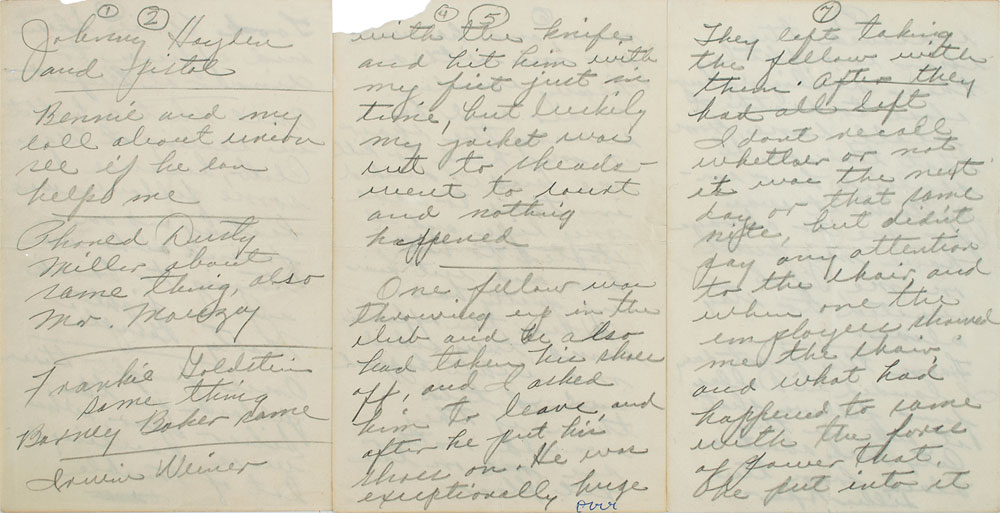 ① ②
Johnny Hayden
and pistol
Bennie and my
call about union
see if he can
helps me
Phoned Dusty
Miller about
same thing, also
Mr.
Frankie Goldstein
same thing
Barney Baker same
Irwin Weiner
④ ⑤
with the knife
and hit him with
my fist just in
time, but luckily
my jacket was
cut to shreds –
went to court
and nothing
happened
One fellow was
throwing up in the
club and he also
had taken his shoes
off, and I asked
him to leave, and
after he put his
shoes on. He was
exceptionally huge
over
⑦
They left taking
the fellow with
them. After they
had all left
I dont recall
whether or not
it was the next
day or that same
nite, but didn't
pay any attention
to the chair, and
when one the
employees showed
me the chair,
and what had
happened to same
with the force
of power that.
he put into it